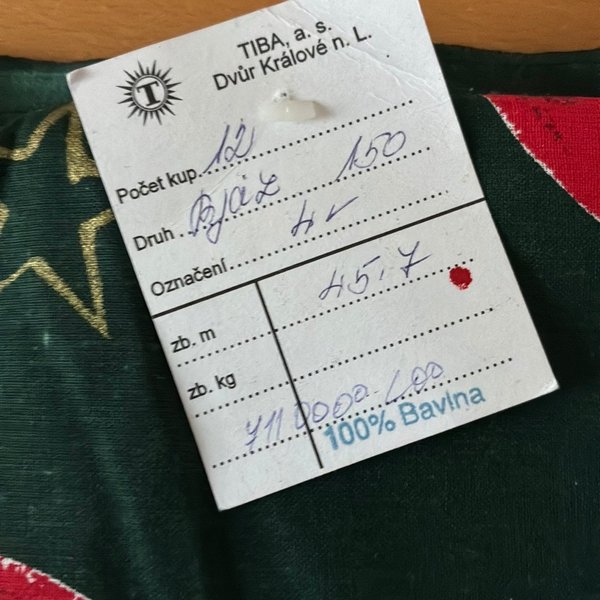 T
TIBA, a. s.
Dvůr Králové n. L.
Počet kup. 12
Druh 150
Označení
zb. m 45.7
zb. kg
100% Bavlna